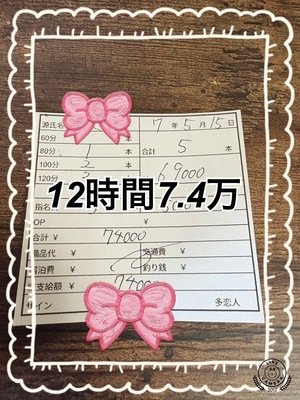 源氏名
7年5月15日
60分
80分 1本 合計 5本
100分 2本
120分 2 69000
12時間7.4万
指名
OP ¥
合計 ¥ 74000
備品代 ¥ 交通費 ¥
宿泊費 ¥ 釣り銭 ¥
支給額 ¥ 74000
サイン 多恋人